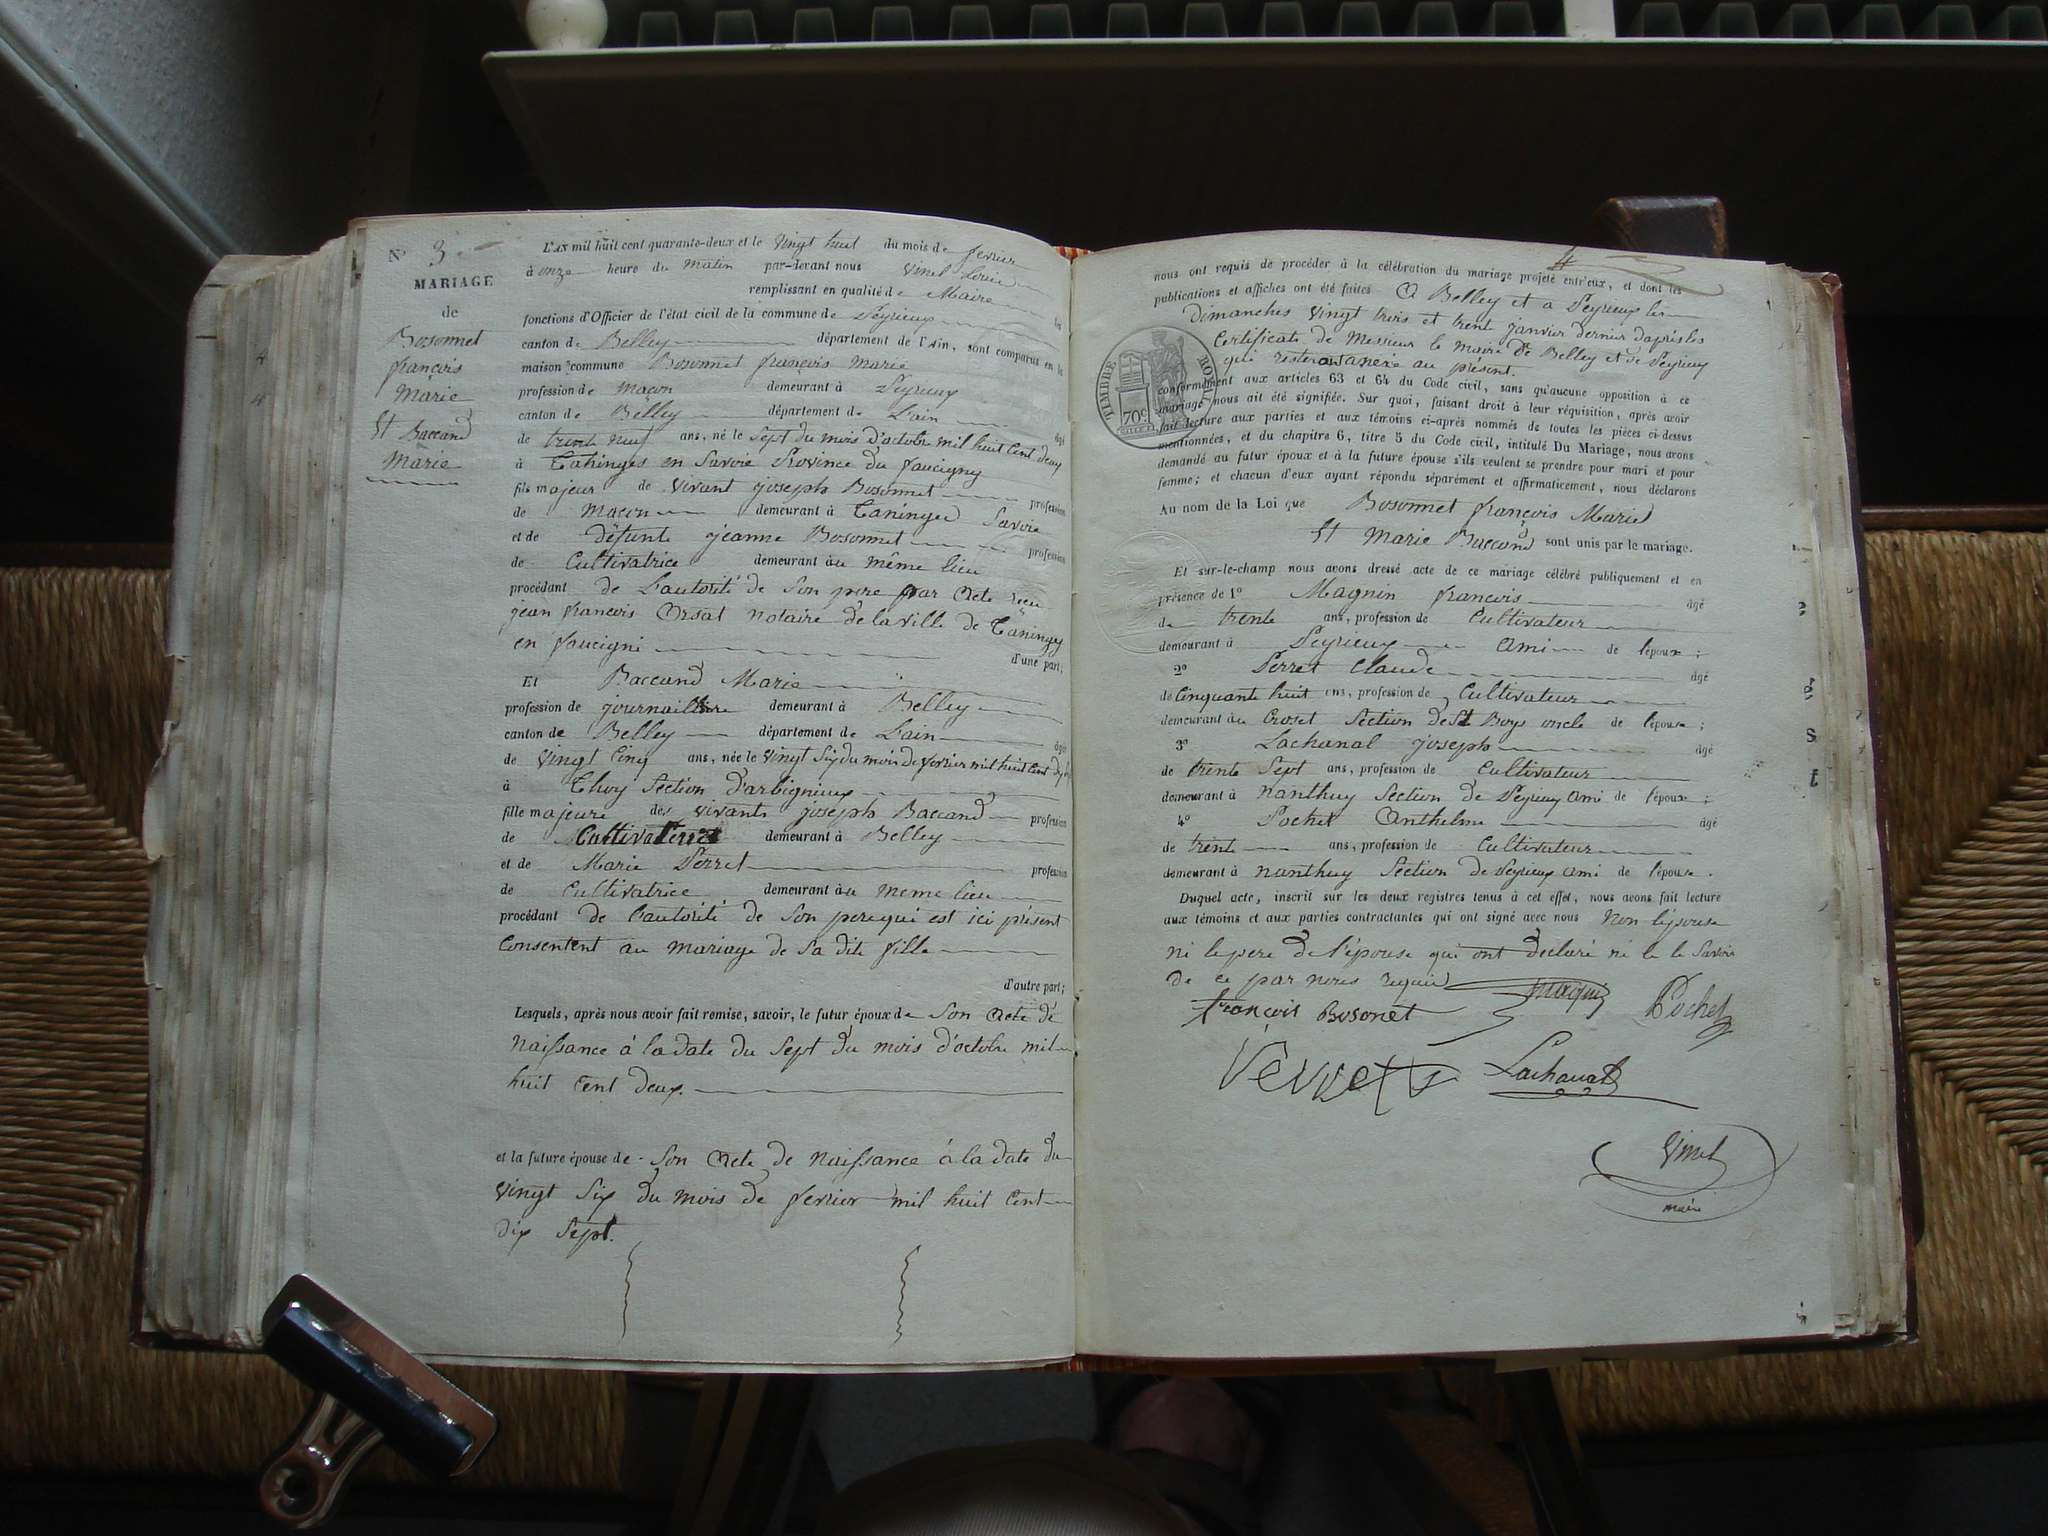 Nº 3
MARIAGE
de
Bosonnet
françois
Marie
Et Baccand
Marie
L'AN mil huit cent quarante-deux et le vingt huit du mois de fevrier
à onze heure du matin par-devant nous Vinet Louis
remplissant en qualité de Maire les
fonctions d'Officier de l'état civil de la commune de Peyrieux
canton de Belley département de l'Ain, sont comparus en la
maison commune Bosonnet françois Marie
profession de Maçon demeurant à Peyrieux
canton de Belley département de L'ain âgé
de trente neuf ans, né le Sept du mois d'octobre mil huit Cent deux
à Taninges en Savoie Province du faucigny
fils majeur de vivant joseph Bosonnet profession
de Maçon demeurant à Taninges Savoie
et de défunte jeanne Bosonnet profession
de Cultivatrice demeurant au même lieu
procédant de L'autorité de Son pere par Acte recu
jean françois Orsat notaire de la ville de Taninges
en faucigni d'une part;
Et Baccand Marie
profession de journalliere demeurant à Belley
canton de Belley département de L'ain âgée
de vingt Cinq ans, née le vingt Six du mois de fevrier mil huit Cent dix
à Thoy Section d'arbignieux
fille majeure des vivants joseph Baccand profession
de Cultivateur demeurant à Belley
et de Marie Perret profession
de Cultivatrice demeurant au meme lieu
procédant de l'autorité de Son pere qui est ici présent
Consentent au mariage de Sa dite fille
d'autre part;
Lesquels, après nous avoir fait remise, savoir, le futur époux de Son Acte de
Naissance à la date du Sept du mois d'octobre mil
huit Cent deux.
et la future épouse de Son Acte de Naissance à la date du
vingt Six du mois de fevrier mil huit Cent
dix Sept.
4
nous ont requis de procéder à la célébration du mariage projeté entr'eux, et dont les
publications et affiches ont été faites A Belley et a Peyrieux les
dimanches vingt trois et trent janvier dernier d'après les
Certificats de Messieur le Maire de Belley et de Peyrieux
qui resteron anexé au présent.
TIMBRE ROYAL
70c
conformément aux articles 63 et 64 du Code civil, sans qu'aucune opposition à ce
mariage nous ait été signifiée. Sur quoi, faisant droit à leur réquisition, après avoir
fait lecture aux parties et aux témoins ci-après nommés de toutes les pièces ci-dessus
mentionnées, et du chapitre 6, titre 5 du Code civil, intitulé Du Mariage, nous avons
demandé au futur époux et à la future épouse s'ils veulent se prendre pour mari et pour
femme; et chacun d'eux ayant répondu séparément et affirmativement, nous déclarons
Au nom de la Loi que Bosonnet françois Marie
Et Marie Baccand sont unis par le mariage.
Et sur-le-champ nous avons dressé acte de ce mariage célébré publiquement et en
présence de 1º Magnin françois âgé
de trente ans, profession de Cultivateur
demeurant à Peyrieux Ami de l'époux;
2º Perret Claude âgé
de Cinquante huit ans, profession de Cultivateur
demeurant au Croset Section de St Boys oncle de l'épouse;
3º Lachanal joseph âgé
de trente Sept ans, profession de Cultivateur
demeurant à Nanthuy Section de Peyrieux Ami de l'époux;
4º Pochet Anthelme âgé
de trente ans, profession de Cultivateur
demeurant à Nanthuy Section de Peyrieux Ami de l'épouse.
Duquel acte, inscrit sur les deux registres tenus à cet effet, nous avons fait lecture
aux témoins et aux parties contractantes qui ont signé avec nous Non lépouse
ni le pere de l'épouse qui ont declaré ne le Savoir
de ce par nous requis
françois Bosonet Magnin Pochet
Lachanal
Vinet
maire